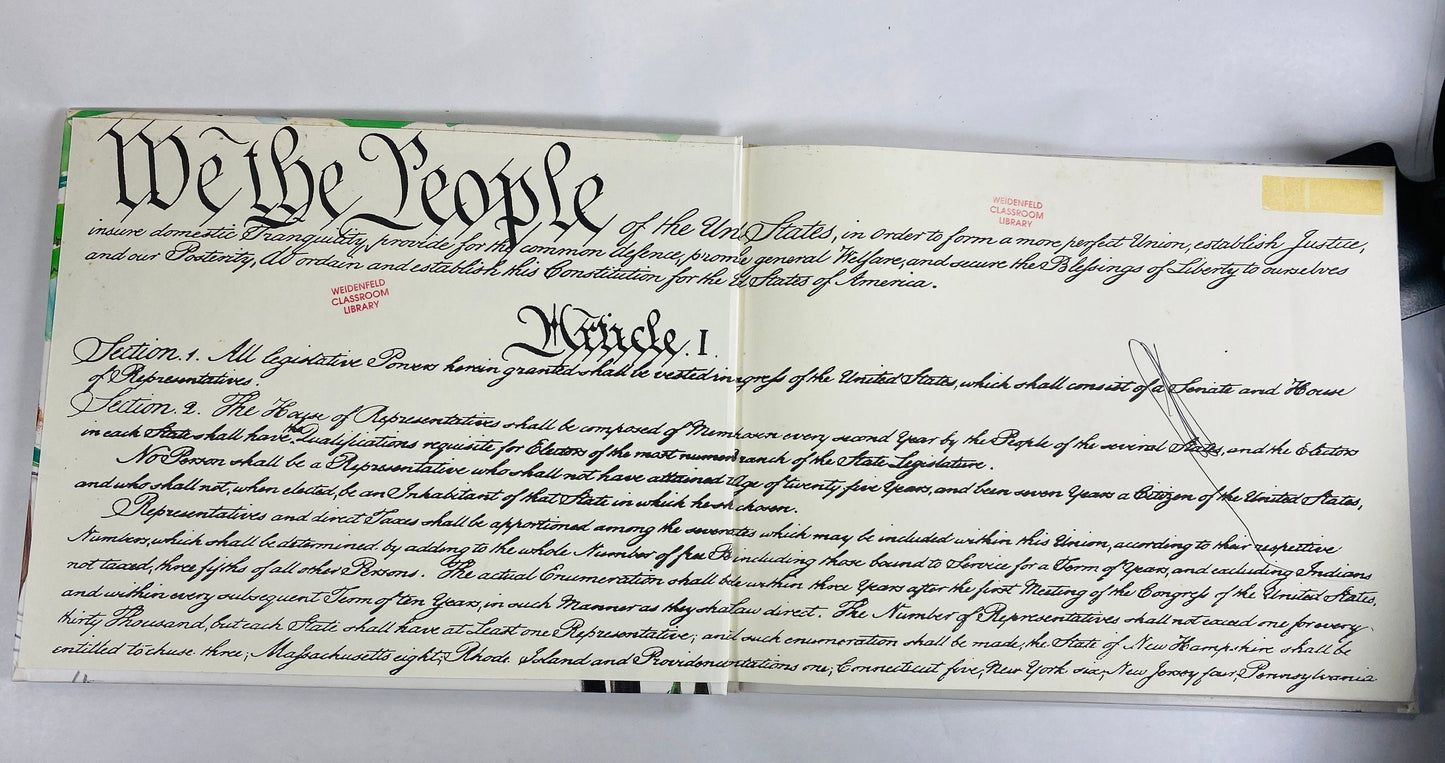 We the People of the Un States, in order to form a more perfect Union, establish Justice,
insure domestic Tranquility, provide for the common defence, prom general Welfare, and secure the Blessings of Liberty to ourselves
and our Posterity, do ordain and establish this Constitution for the U States of America.
WEIDENFELD
CLASSROOM
LIBRARY
WEIDENFELD
CLASSROOM
LIBRARY
Article. I.
Section. 1. All legislative Powers herein granted shall be vested in gress of the United States, which shall consist of a Senate and House
of Representatives.
Section. 2. The House of Representatives shall be composed of Mem osen every second Year by the People of the several States, and the Electors
in each State shall have the Qualifications requisite for Electors of the most numer ranch of the State Legislature.
No Person shall be a Representative who shall not have attained Age of twenty five Years, and been seven Years a Citizen of the United States,
and who shall not, when elected, be an Inhabitant of that State in which he sh chosen.
Representatives and direct Taxes shall be apportioned among the sever tes which may be included within this Union, according to their respective
Numbers, which shall be determined by adding to the whole Number of free including those bound to Service for a Term of Years, and excluding Indians
not taxed, three fifths of all other Persons. The actual Enumeration shall be within three Years after the first Meeting of the Congress of the United States,
and within every subsequent Term of ten Years, in such Manner as they shal aw direct. The Number of Representatives shall not exceed one for every
thirty Thousand, but each State shall have at Least one Representative; and such enumeration shall be made, the State of New Hampshire shall be
entitled to chuse three, Massachusetts eight, Rhode Island and Providen ntations one, Connecticut five, New York six, New Jersey four, Pennsylvania